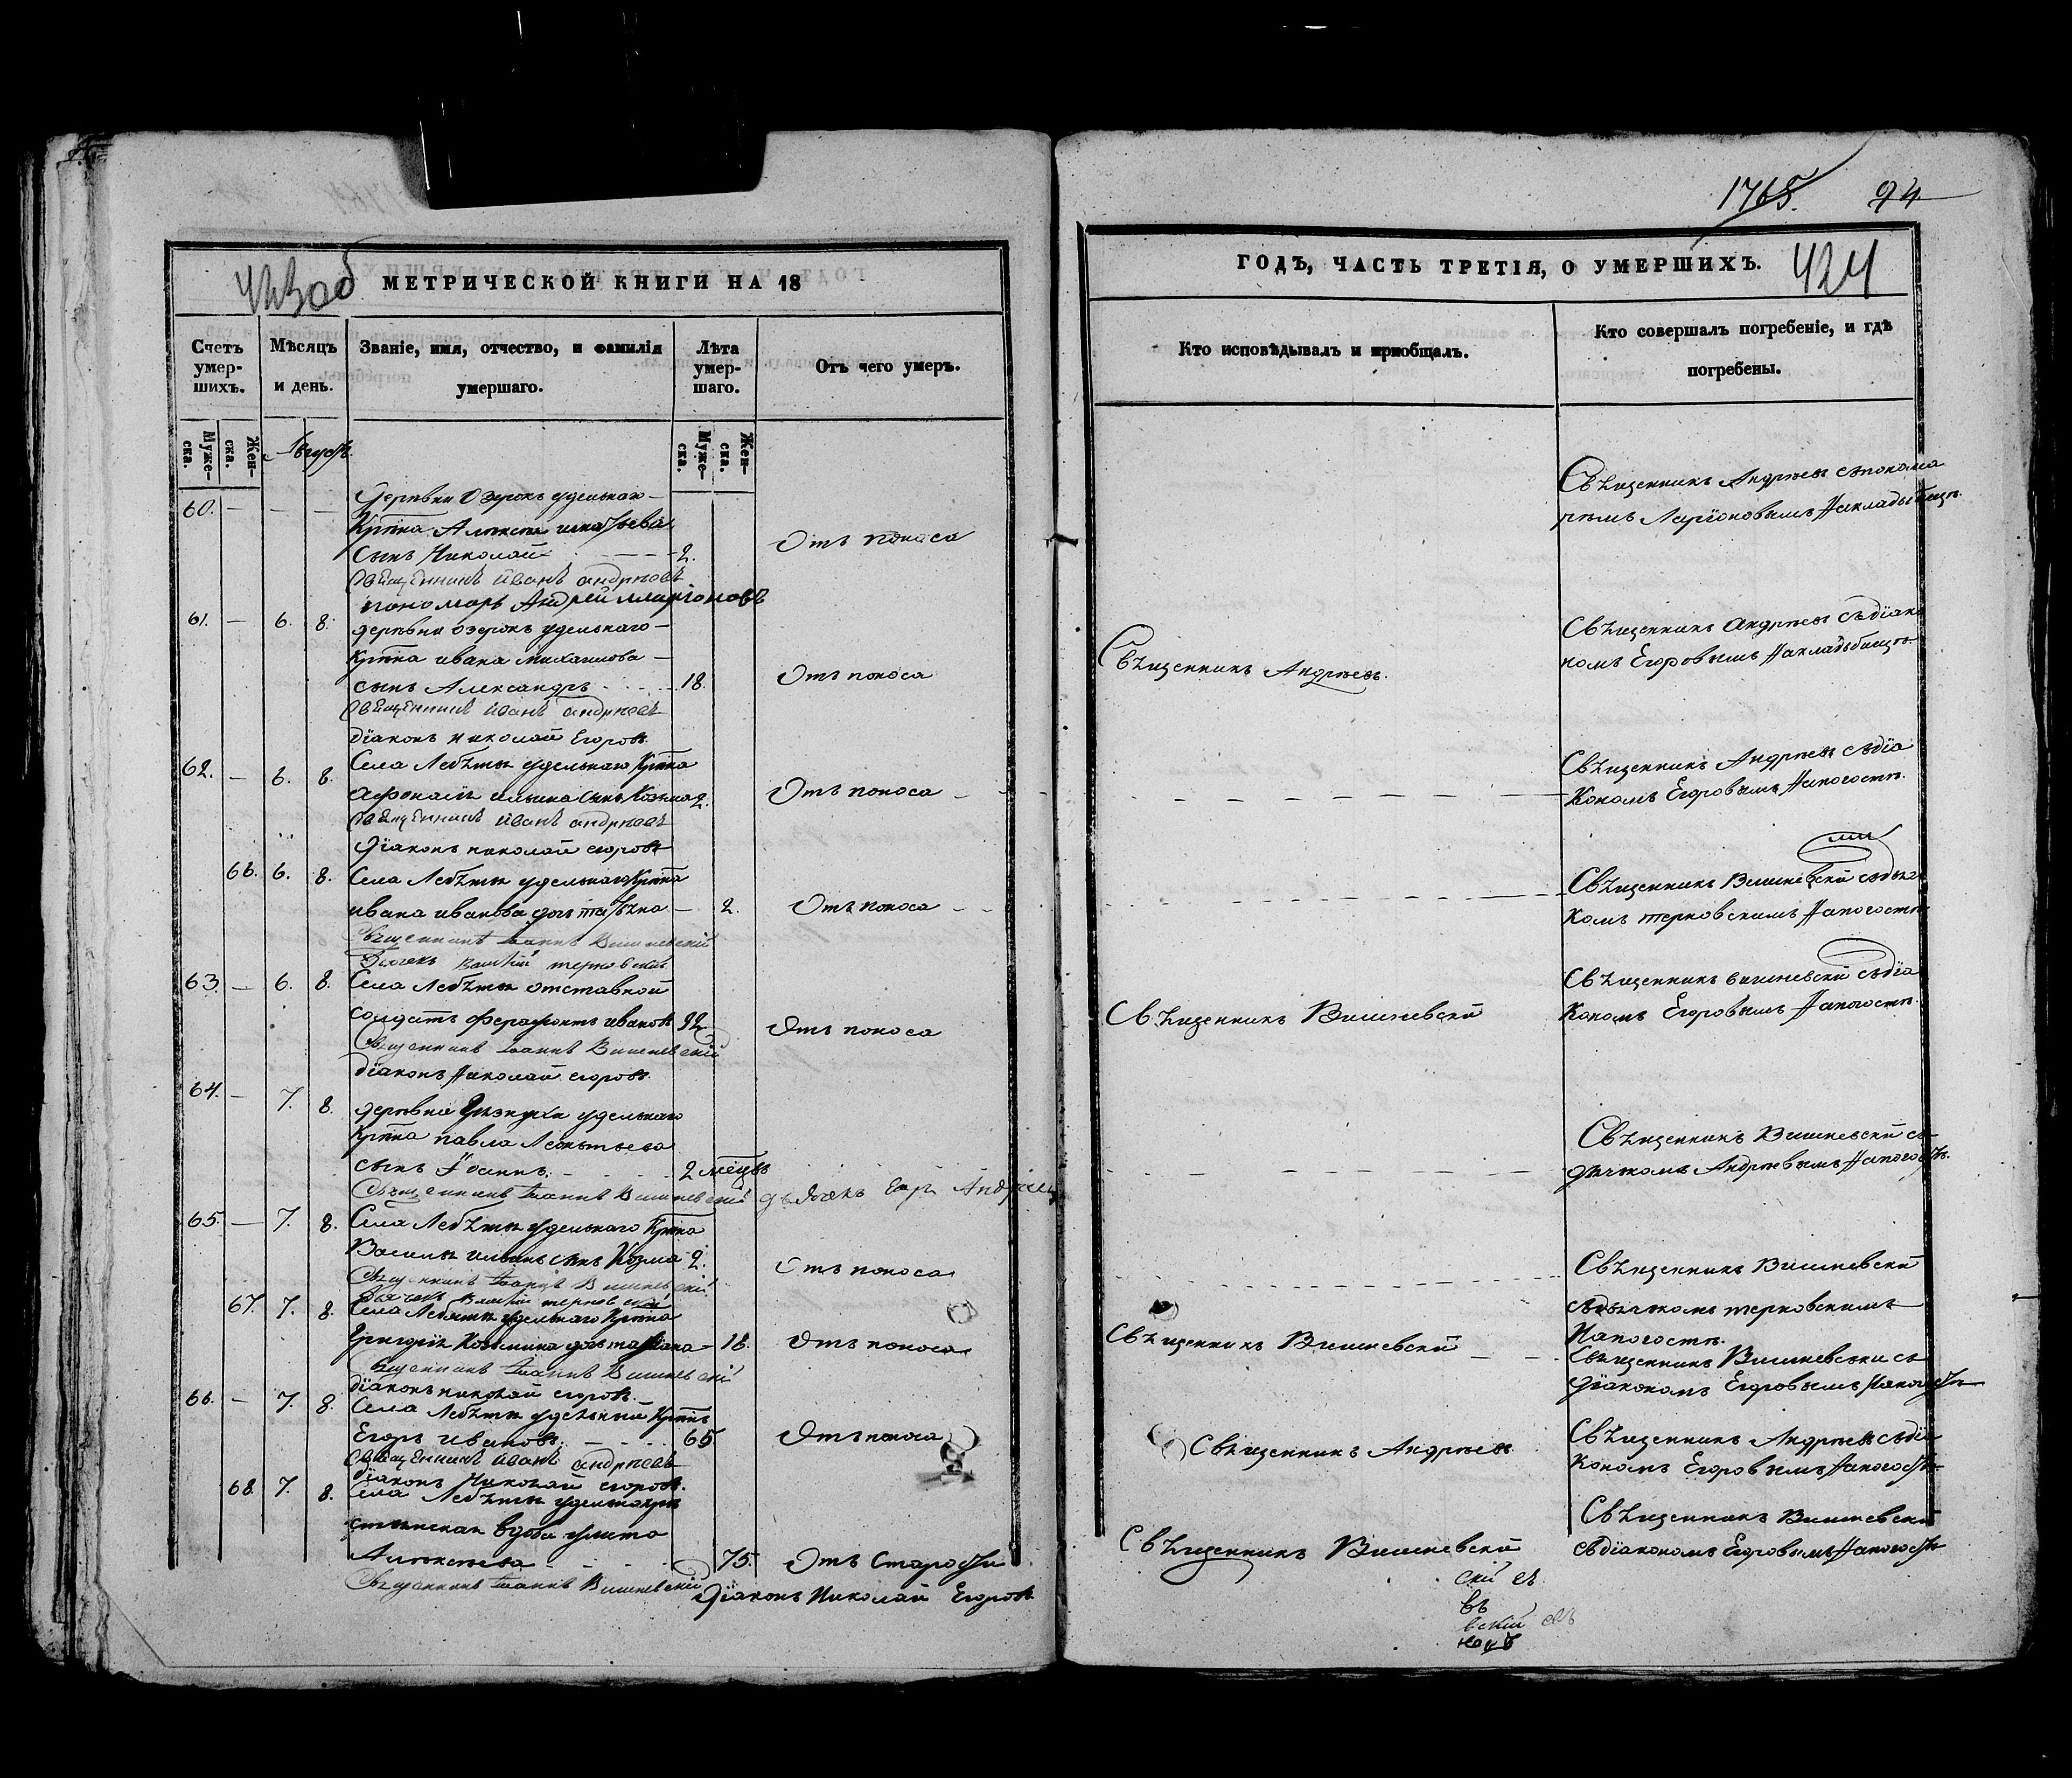 1765. 94
423 об
МЕТРИЧЕСКОЙ КНИГИ НА 18
Счетъ умер-шихъ.
Мѣсяцъ и день.
Званіе, имя, отчество, и фамилія умершаго.
Лѣта умер-шаго.
Отъ чего умеръ.
Муже-ска.
Жен-ска.
Августъ.
Муже-ска.
Жен-ска.
60. — — —
Деревни Озерокъ удельнаго
Крѣтна Алексѣя Игнатьева
сынъ Николай 2.
Отъ поноса
Священникъ Иванъ Андреевъ
пономарь Андрей Ларіоновъ
61. — 6. 8.
деревни Озерокъ удельнаго
Крѣтна Ивана Михаилова
сынъ Александръ 18.
Отъ поноса
Священникъ Иванъ Андреевъ
діаконъ Николай Егоровъ.
62. — 6. 8.
Села Лебѣжьи удельнаго Крѣтна
Афонасія Ильина сынъ Козьма 2.
Отъ поноса
Священникъ Иванъ Андреевъ
Діаконъ Николай Егоровъ
66. 6. 8.
Села Лебѣжьи удельнаго Крѣтна
Ивана Иванова дочь Татьяна 2.
Отъ поноса
Священникъ Іоаннъ Вишневскій
Дьячекъ Терновскій
63. — 6. 8.
Села отставной
солдатъ Ферафонтъ Ивановъ 92
Отъ поноса
Священникъ Іоаннъ Вишневскій
діаконъ Николай Егоровъ.
64. — 7. 8.
деревни удельнаго
Крѣтна Павла Леонтьева
сынъ Іоаннъ. 2 мѣцъ
Священникъ Іоаннъ Вишневскій дьячекъ Андреевъ
65. — 7. 8.
Села удельнаго Крѣтна
Василья сынъ Козма 2.
Отъ поноса
Священникъ Іоаннъ Вишневскій
Дьячекъ Терновскій
67. 7. 8.
Села удельнаго Крѣтна
Григорія Козьмина дочь Татьяна 18.
Отъ поноса
Священникъ Іоаннъ Вишневскій
діаконъ Николай Егоровъ.
66. — 7. 8.
Села удельный Крѣтнъ
Егоръ Ивановъ. 65
Отъ поноса
Священникъ Иванъ Андреевъ
діаконъ Николай Егоровъ.
68. 7. 8.
Села удельная кре
стьянская вдова Улита
Алексеева 75.
Отъ Старости
Священникъ Іоаннъ Вишневскій
Діаконъ Николай Егоровъ
ГОДЪ, ЧАСТЬ ТРЕТІЯ, О УМЕРШИХЪ. 424
Кто исповѣдывалъ и пріобщалъ.
Кто совершалъ погребеніе, и гдѣ погребены.
Свѣщенникъ Андреевъ съ понома
ремъ Ларіоновымъ На кладьбищѣ.
Свѣщенникъ Андреевъ.
Свѣщенникъ Андреевъ съ діако
номъ Егоровымъ На кладьбищѣ
Свѣщенникъ Андреевъ съ діа
кономъ Егоровымъ На погостѣ.
Свѣщенникъ Вишневскій съ дьяч
комъ Терновскимъ На погостѣ
Свѣщенникъ Вишневскій
Свѣщенникъ Вишневскій съ діа
кономъ Егоровымъ На погостѣ.
Свѣщенникъ Вишневскій съ
дьячкомъ Андреевымъ На погостѣ.
Свѣщенникъ Вишневскій
съ дьячкомъ Терновскимъ
На погостѣ.
Свѣщенникъ Вишневскій
Свѣщенникъ Вишневски съ
Діакономъ Егоровымъ На погостѣ
Свѣщенникъ Андреевъ
Свѣщенникъ Андреевъ съ діа
кономъ Егоровымъ На погостѣ.
Свѣщенникъ Вишневскій
Свѣщенникъ Вишневскій
съ діакономъ Егоровымъ На погостѣ
скій съ
въ
вскій